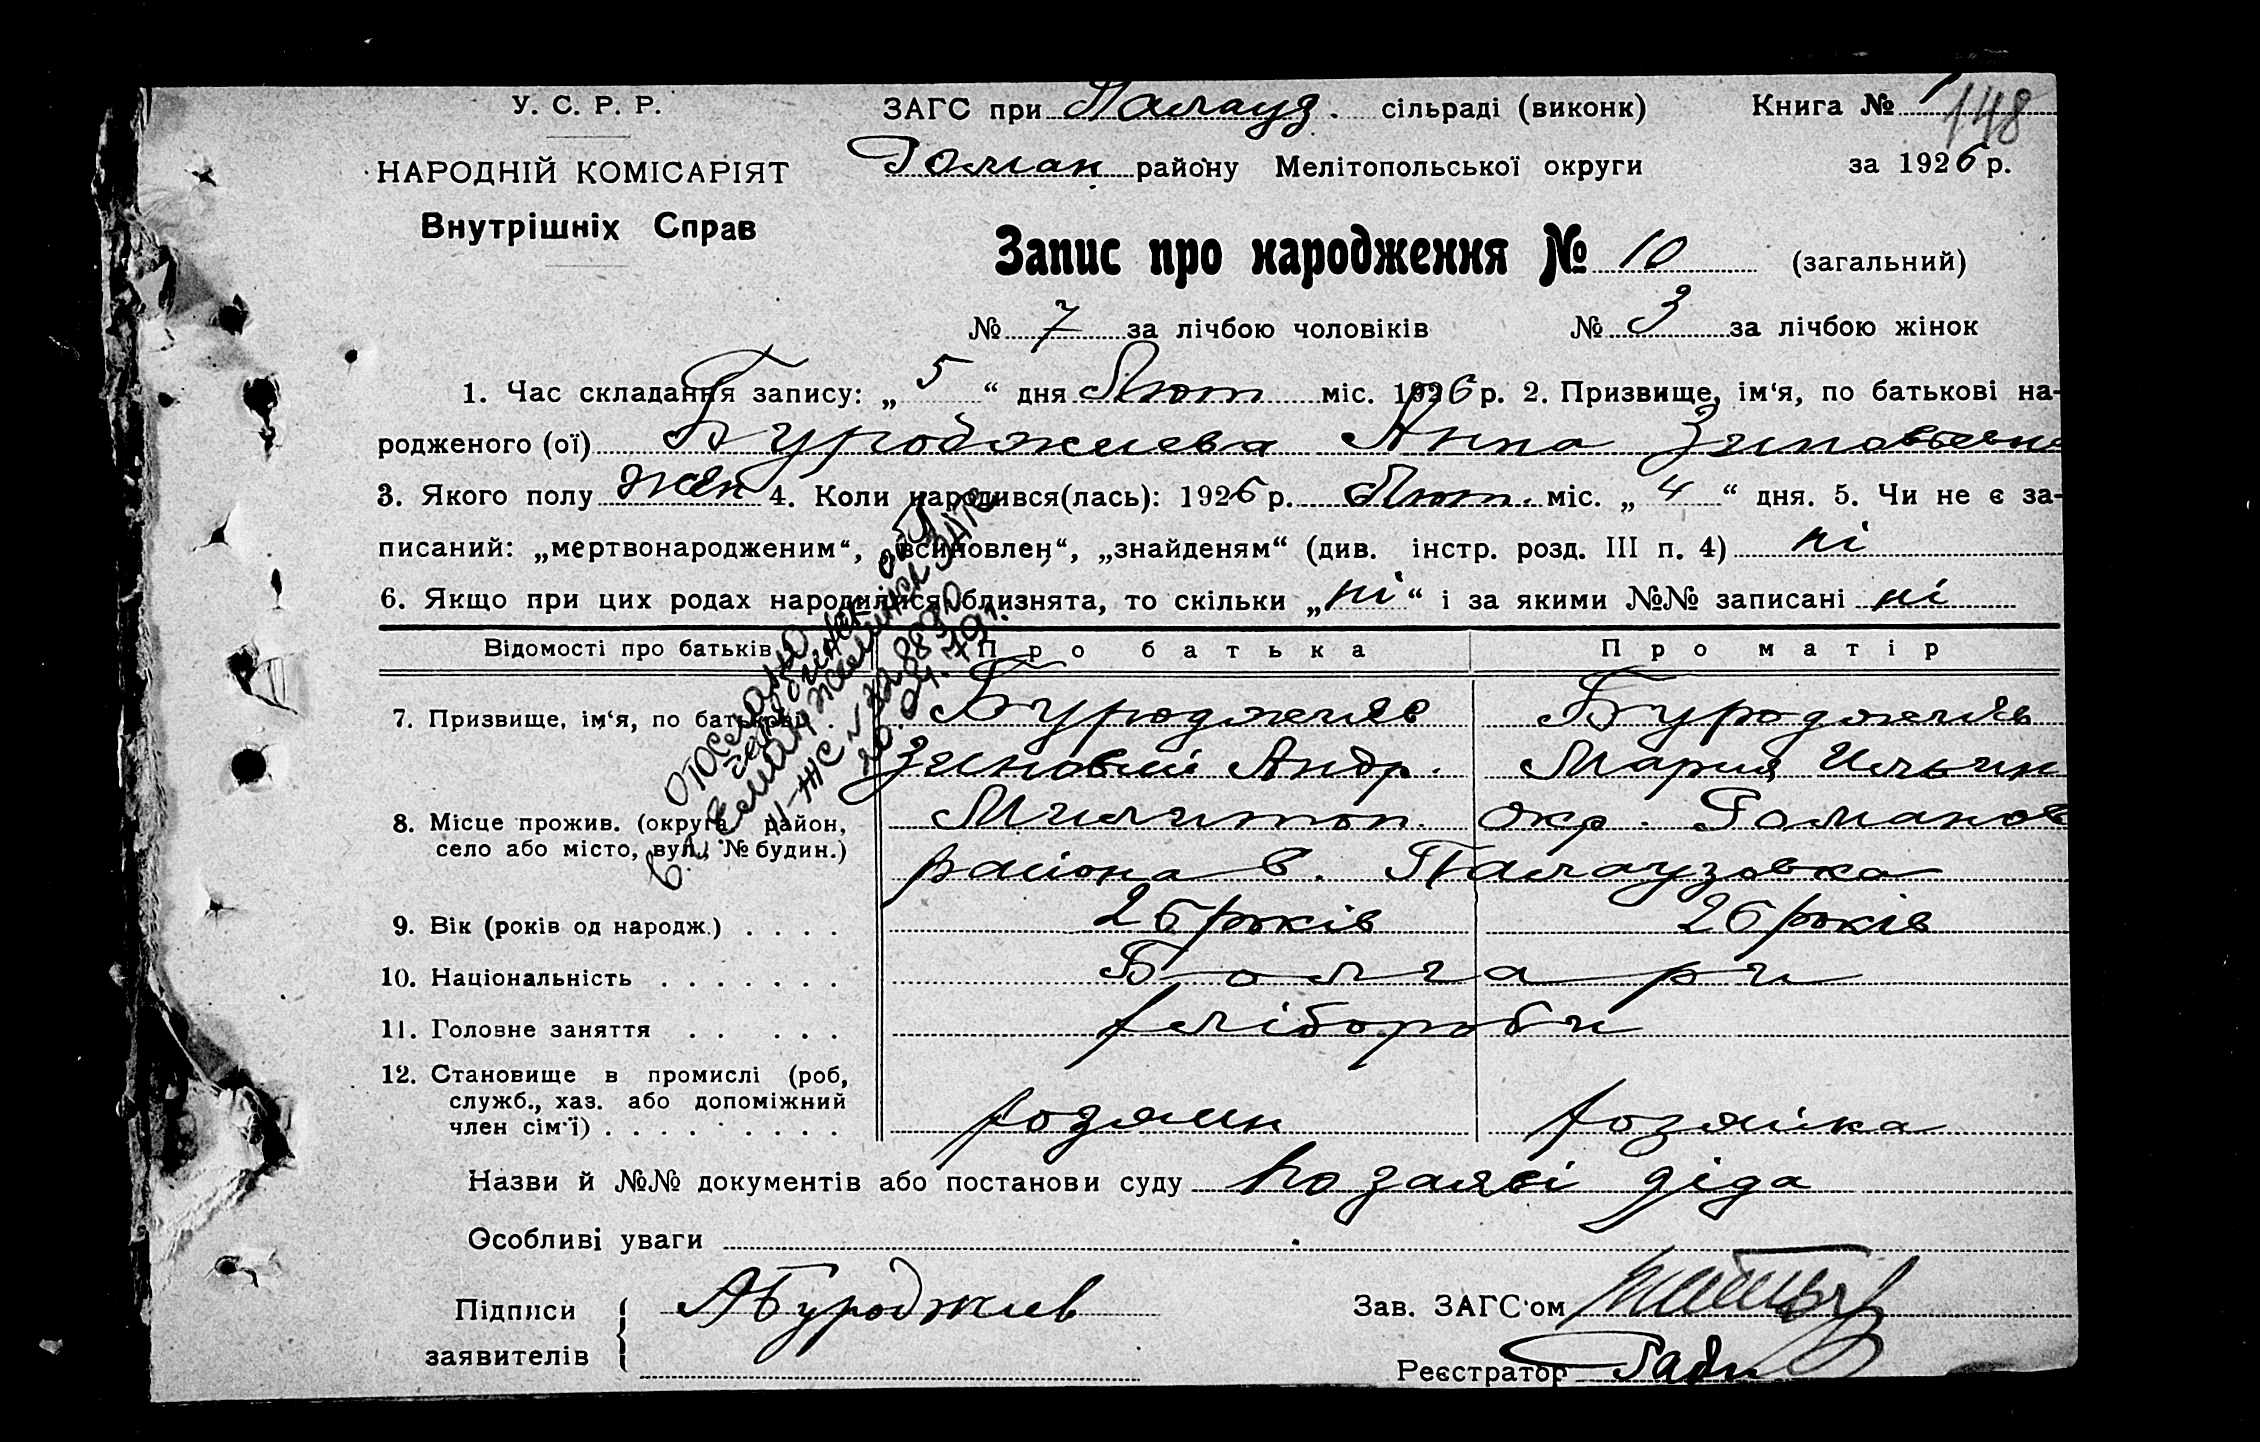 У. С. Р. Р.
НАРОДНІЙ КОМІСАРІЯТ
Внутрішніх Справ
ЗАГС при Палауз. сільраді (виконк)
Книга № 1
148
Роман. району Мелітопольської округи
за 1926 р.
Запис про народження № 10 (загальний)
№ 7 за лічбою чоловіків № 3 за лічбою жінок
1. Час складання запису: „ 5 “ дня Лют міс. 1926 р. 2. Призвище, ім‘я, по батькові на-
родженого (ої) Буроджиева Анна Зиновьевна
3. Якого полу жен 4. Коли народився(лась): 1926 р. Лют. міс. „ 4 “ дня. 5. Чи не є за-
писаний: „мертвонародженим“, „всиновлен“, „знайденям“ (див. інстр. розд. III п. 4) ні
6. Якщо при цих родах народилися близнята, то скільки „ ні “ і за якими №№ записані ні
Відомості про батьків
Про батька
Про матір
7. Призвище, ім‘я, по батькові .
Буроджиев
Буроджиев
Зиновий Андр.
Мария Ильин
8. Місце прожив. (округа, район,
село або місто, вул., № будин.)
Милитоп. окр. Романов
района с. Палаузовка
9. Вік (років од народж.) . . . .
26 років
26 років
10. Національність . . . . . . .
Болгари
11. Головне заняття . . . . .
хлібороби
12. Становище в промислі (роб,
служб., хаз. або допоміжний
член сім‘ї) . . . . . . . . .
хозяин
хозяйка
Назви й №№ документів або постанови суду по заяві діда
Особливі уваги
Підписи
заявителів
АБуроджиев
Зав. ЗАГС‘ом
Реєстратор